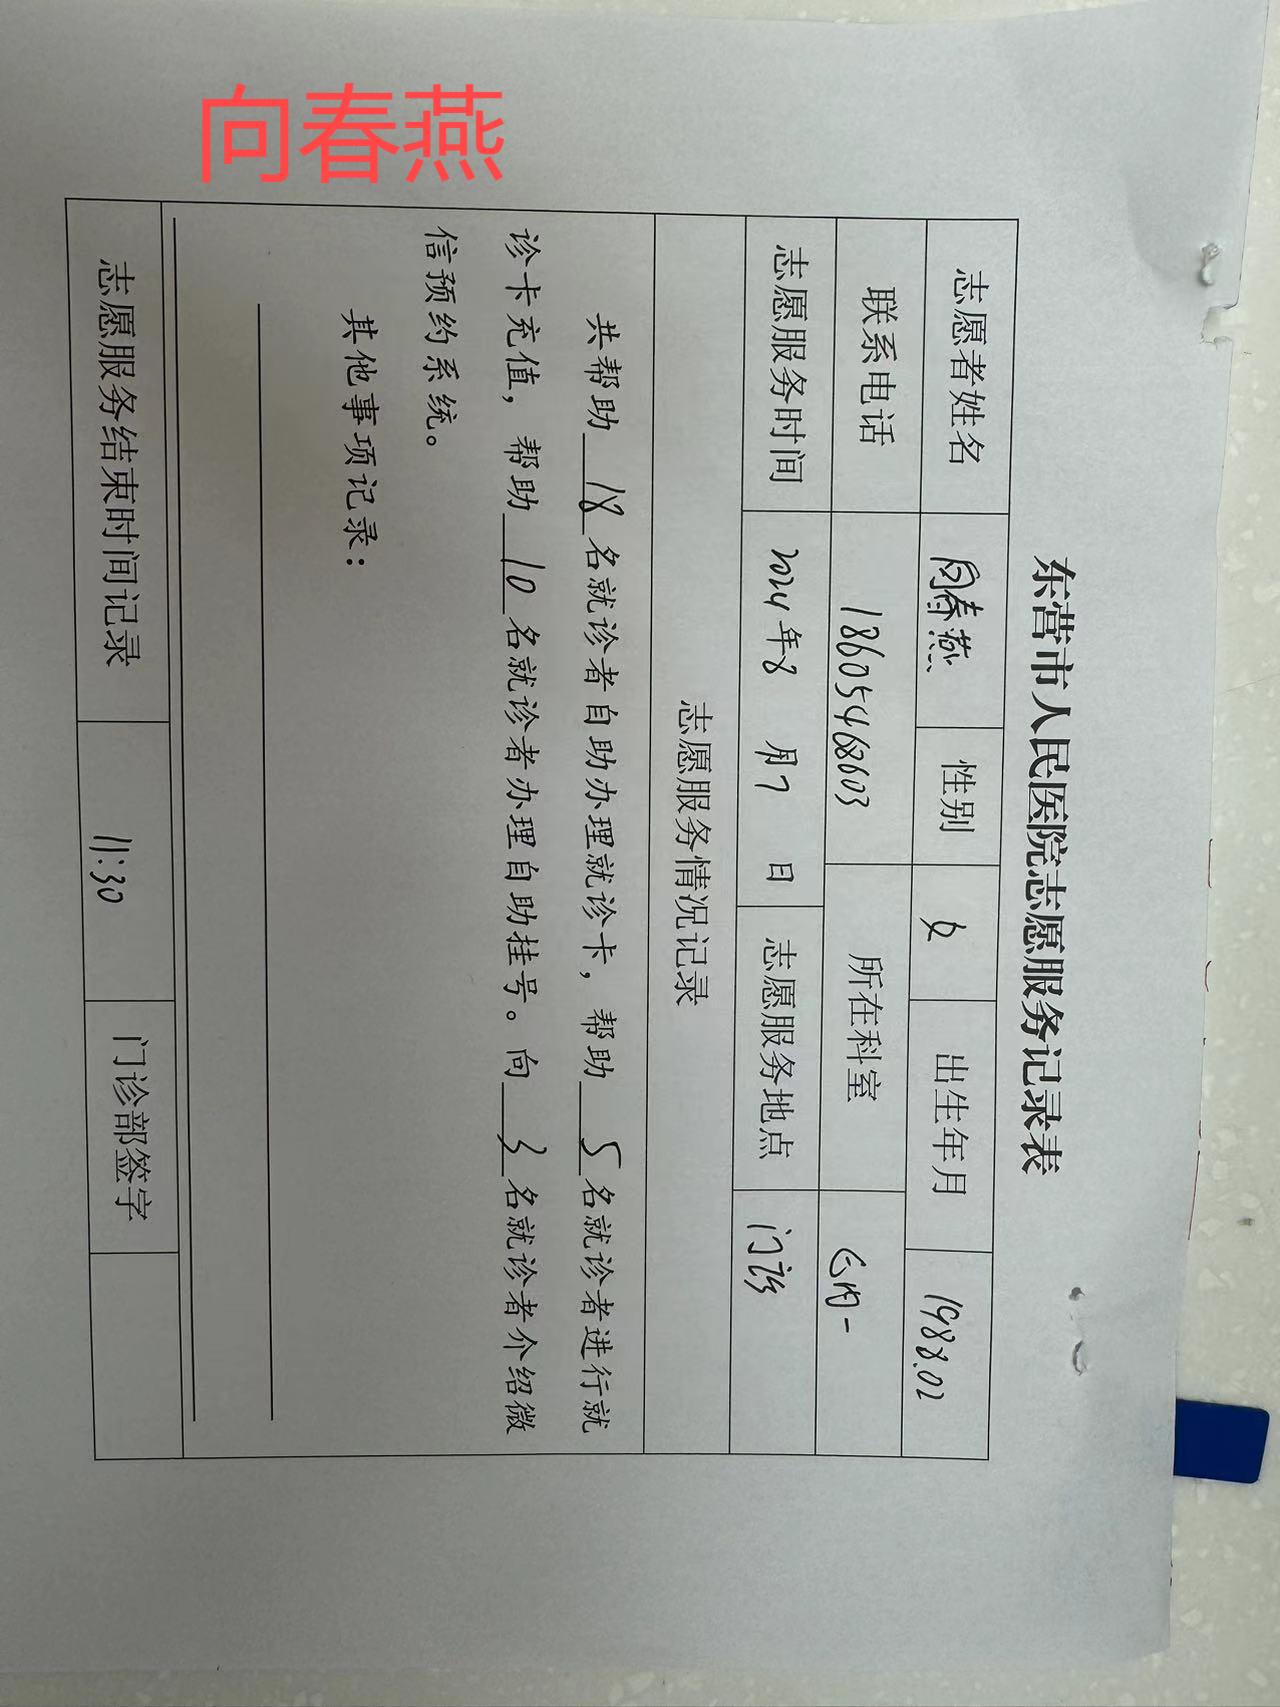 向春燕
东营市人民医院志愿服务记录表
志愿者姓名 向春燕 性别 女 出生年月 1988.02
联系电话 18605468603 所在科室 心内一
志愿服务时间 2024年8月7日 志愿服务地点 门诊
志愿服务情况记录
共帮助 18 名就诊者自助办理就诊卡，帮助 5 名就诊者进行就
诊卡充值，帮助 10 名就诊者办理自助挂号。向 3 名就诊者介绍微
信预约系统。
其他事项记录：
志愿服务结束时间记录 11:30 门诊部签字